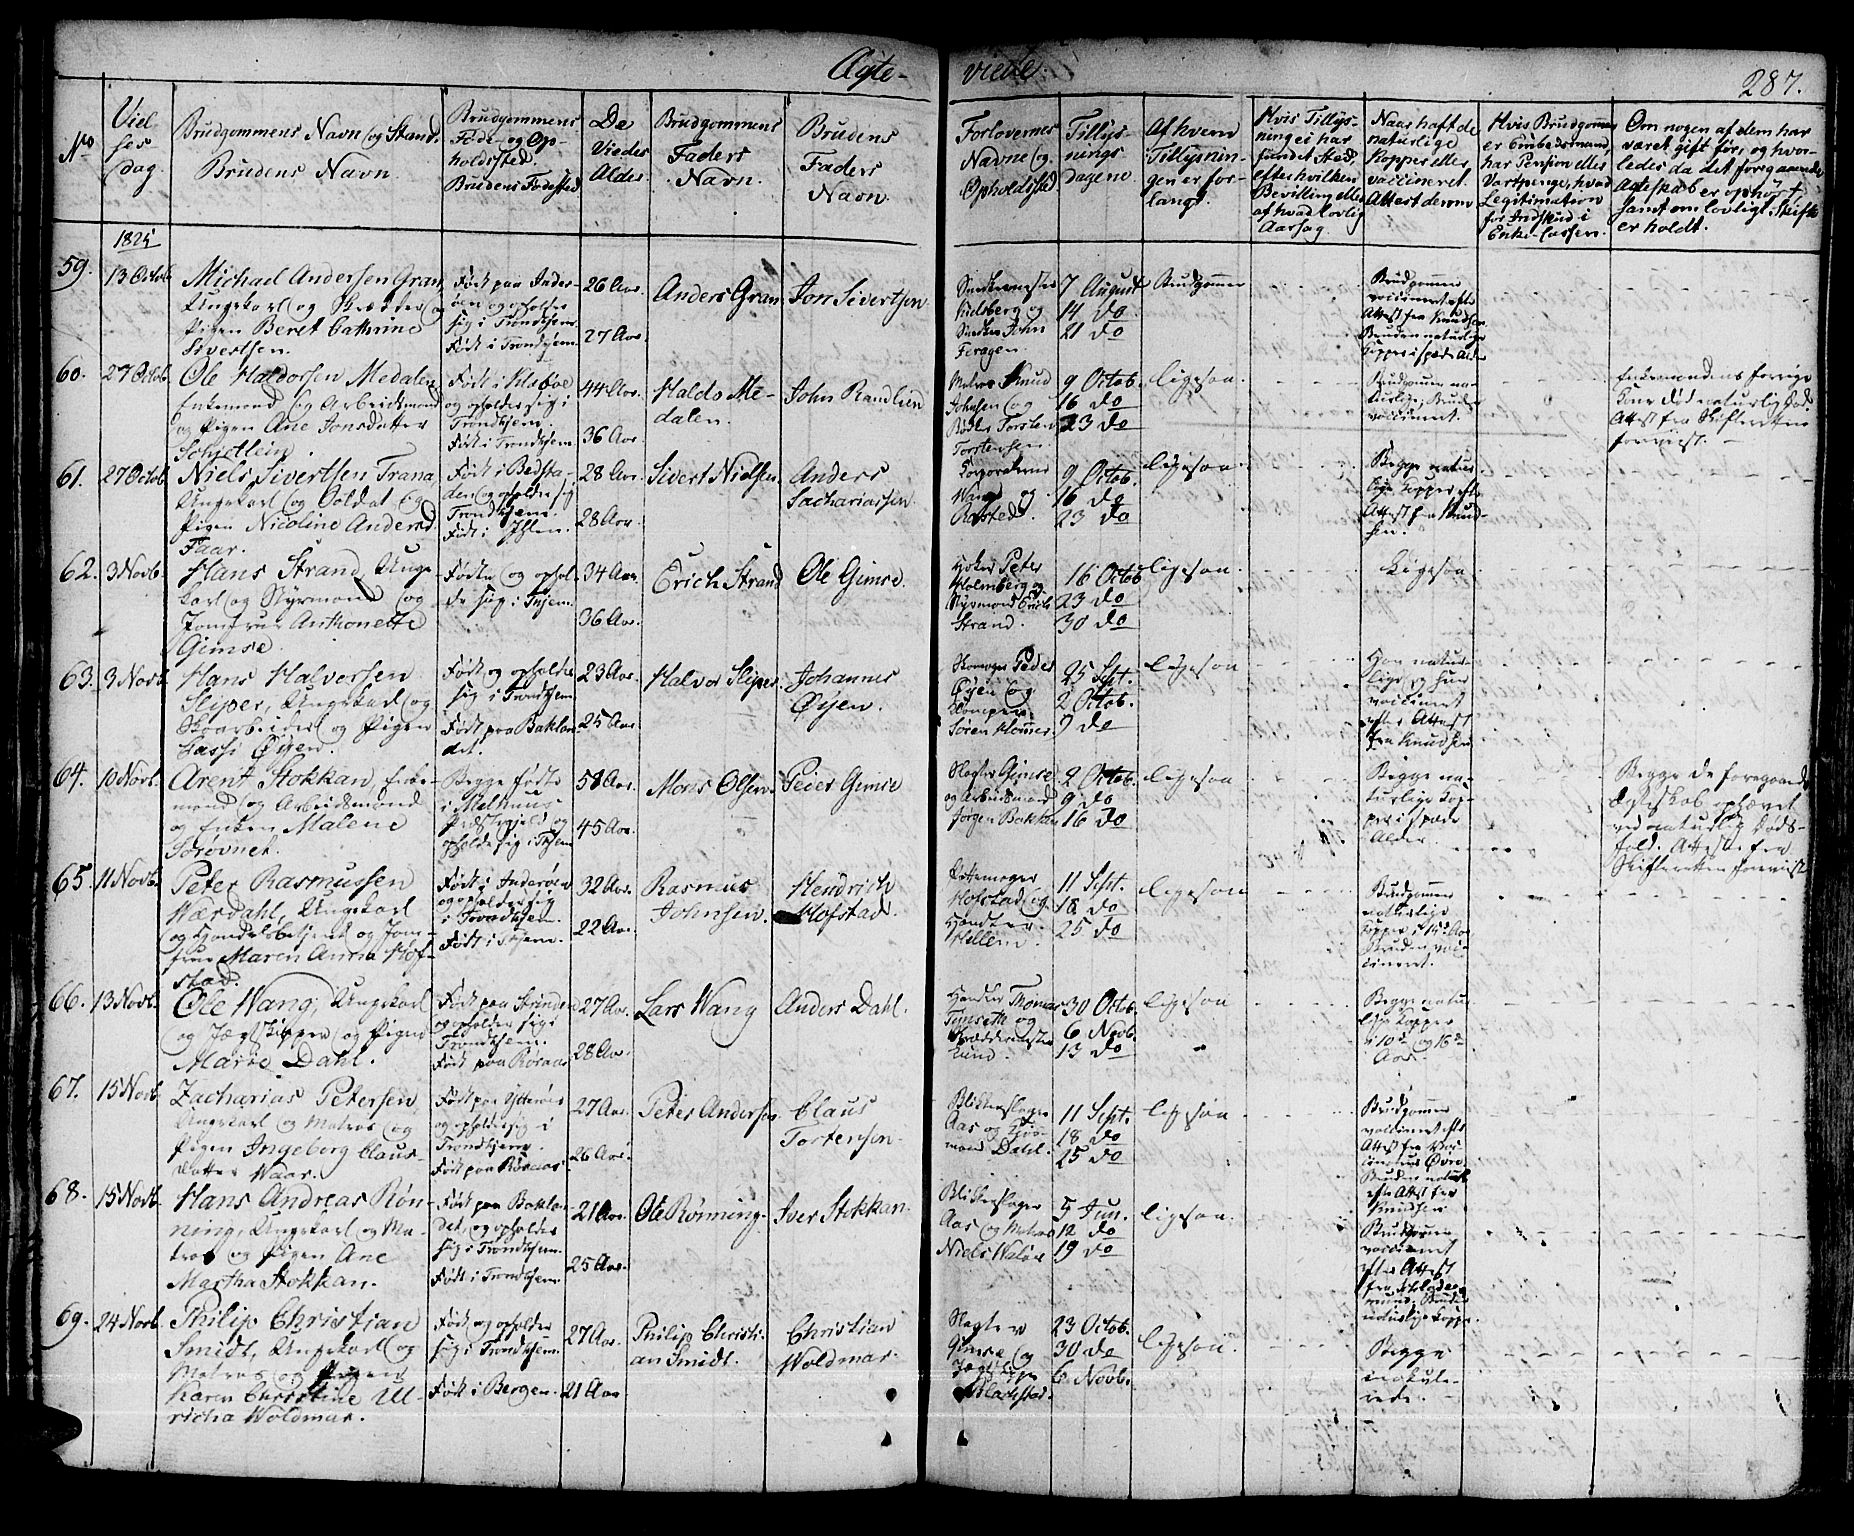 Ægte-
viede.
287.
No
Viel
ses-
dag.
Brudgommens Navn og Stand.
Brudens Navn.
Brudgommens
Føde- og Op-
holdssted.
Brudens Fødested
De
Viedes
Alder
Brudgommens
Faders
Navn.
Brudens
Faders
Navn.
Forlovernes
Navne og
Opholdssted
Tillys-
nings
dagene.
Af hvem
Tillysnin-
gen er for-
langt.
Hvis Tillys-
ning ei har
fundet Sted,
efter hvilken
Bevilling eller
af hvad lovlig
Aarsag.
Naar haft de
naturlige
Kopper eller
vaccineret.
Attest derom
Hvis Brudgommen
er Embedsmand,
har Pension eller
Vartpenge, hvad
Legitimation
for Indskud i
Enke-Cassen.
Om nogen af dem har
været gift før, og hvor-
ledes da det foregaaende
Ægteskab er ophørt
samt om lovligt Skifte
er holdt.
1825
59.
13 Octob
Michael Andersen Gran
Ungekarl og Skrædder og
Pigen Beret Cathrine
Sivertsen.
Født paa Inder-
øen og opholder
sig i Trondhjem.
Født i Trondhjem
26 Aar.
27 Aar.
Anders Gran
Jon Sivertsen
og
Smeden John
Feragen.
7 August
14 do
21 do
Brudgommen
Brudgommen
vaccineret efter
Attest fra Knudsen
Bruden naturlige
Kopper i spæde Alder
60.
27 Octob
Ole Haldorsen Medalen
Enkemand og Arbeidsmand
og Pigen Ane Jonsdatter
Schjetlein.
Født i
og opholder sig i
Trondhjem.
Født i Trondhjem
44 Aar.
36 Aar.
Haldo Me-
dalen.
John Randlien
Matros Knud
Johnsen og
Torsten
Torstensen.
9 Octob.
16 do
23 do
ligesaa.
Brudgommen na-
turlige, Bruden
vaccineret.
Enkemandens forrige
Kone død naturlig Død.
Attest fra Skifteretten
foreviist.
61.
27 Octob
Niels Sivertsen Trana
Ungekarl og Soldat og
Pigen Nicoline Andersd
Faar.
Født i Bedsta-
den og opholder sig
i Trondhjem.
Født i Ihlen.
28 Aar.
28 Aar.
Sivert Nielsen
Anders
Sachariassen.
Corporalerne
Wang og
Rosted.
9 Octob.
16 do
23 do
ligesaa.
Begge natur-
lige Kopper efter
Attest fra Knud-
sen.
62.
3 Novb.
Hans Strand, Unge-
karl og Styrmand og
Jomfrue Anthonette
Gimse.
Fødte og ophol-
de sig i Thjem.
34 Aar.
36 Aar.
Erich Strand
Ole Gimse
Høker Peter
Holmberg og
Styrmand Erich
Strand.
16 Octob
23 do
30 do
ligesaa.
Ligesaa.
63.
3 Novb.
Hans Halvorsen
Sliper, Ungekarl og
Skoarbeider og Pigen
Øyen.
Født og opholder
sig i Trondhjem
Født paa Baklan-
det.
23 Aar.
25 Aar.
Halvor Sliper.
Johannes
Øyen.
Skomager Peder
Øyen og
Søren Hammer
25 Sept.
2 Octob.
9 do
ligesaa
Han natur-
lige og hun
vaccineret
efter Attest
fra Knudsen
64.
10 Novb.
Arent Stokkan, Enke-
mand og Arbeidsmand
og Enken Malene
Sorovnet.
Begge fødte
i Melhuus
Præstegjeld og
opholde sig i Thjem
58 Aar.
45 Aar.
Mons Olsen
Peter Gimse
Slagter Gimse
og Arbeidsmand
Jørgen Bakken
2 Octob.
9 do
16 do
ligesaa
Begge na-
turlige Kop-
per i spæde
Alder.
Begge de foregaaende
Ægteskab ophævet
ved naturlig Døds-
fald. Attester fra
Skifteretten foreviist
65.
11 Novb.
Peter Rasmussen
Wærdahl, Ungekarl
og Handelsbetjent og Jom-
frue Maren Anna Hof-
stad.
Født i Inderøen
og opholder sig
i Trondhjem.
Født i Thjem.
32 Aar.
22 Aar.
Rasmus
Johnsen.
Hendrich
Hofstad.
Pottemager
Hofstad og
Handler
Hellem.
11 Sept.
18 do
25 do
ligesaa
Brudgommen
naturlige
Kopper i 15de Aar
Bruden vac-
cineret.
66.
13 Novb.
Ole Wang, Ungekarl
og Jægtskipper og Pigen
Maroe Dahl.
Født paa Strinden
og opholder sig i
Trondhjem.
Født paa Røraas
27 Aar.
28 Aar.
Lars Wang
Anders Dahl.
Handler Thomas
og
Skræddermester
Lund.
30 Octob.
6 Novb.
13 do
ligesaa
Begge natur-
lige Kopper
i 10de og 16de
Aar.
67.
15 Novb.
Zacharias Petersen
Ungekarl og Matros og
Pigen Ingeborg Claus-
datter Waar.
Født paa Ytterøen
og opholder sig i
Trondhjem.
Født paa Røraas
27 Aar.
26 Aar.
Peter Andersen
Claus
Tortensen.
Blikkenslager
Aas og
mand Dahl.
11 Sept.
18 do
25 do
ligesaa
Brudgommen
vaccineret efter
Attest fra
Bruden naturl.
efter Attest fra
Knudsen
68.
15 Novb.
Hans Andreas Røn-
ning, Ungekarl og Ma-
tros og Pigen Ane
Martha Stokkan.
Født paa Baklan-
det, og opholder
sig i Trondhjem.
Født i Trondhjem.
21 Aar.
25 Aar.
Ole Rønning.
Iver Stokkan.
Blikkenslager
Aas og Matros
Niels
5 Jun.
12 do
19 do
ligesaa.
Brudgommen
vaccineret
efter Attest
fra
Bruden
naturlige Kopper.
69.
24 Novb.
Philip Christian
Smidt, Ungekarl og
Matros og Pigen
Karen Christine Ul-
richa Woldmar.
Født og opholder
sig i Trondhjem.
Født i Bergen.
27 Aar.
21 Aar
Philip Christi-
an Smidt.
Christian
Woldmar.
Slagter
Gimse og
Jægtskipper
23 Octob.
30 do
6 Novb.
ligesaa.
Begge
inokule-
rede.